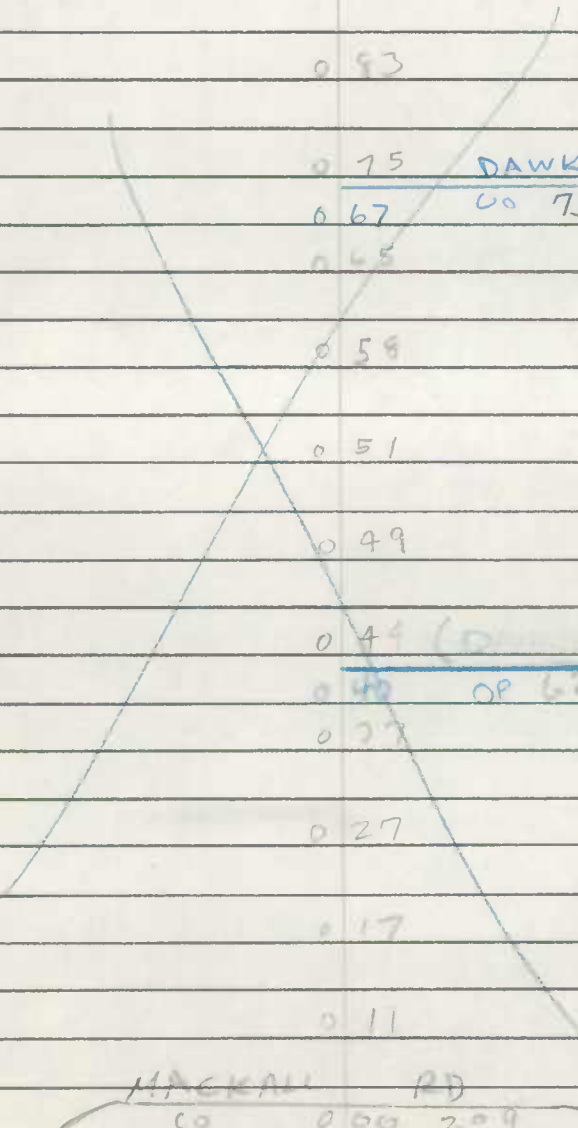 0 83
0 75 DAWK
0 67 CO 7
0 65
0 58
0 51
0 49
0 44
0 OP 6
0 27
0 17
0 11
MACKALL RD
CO 0 00 209